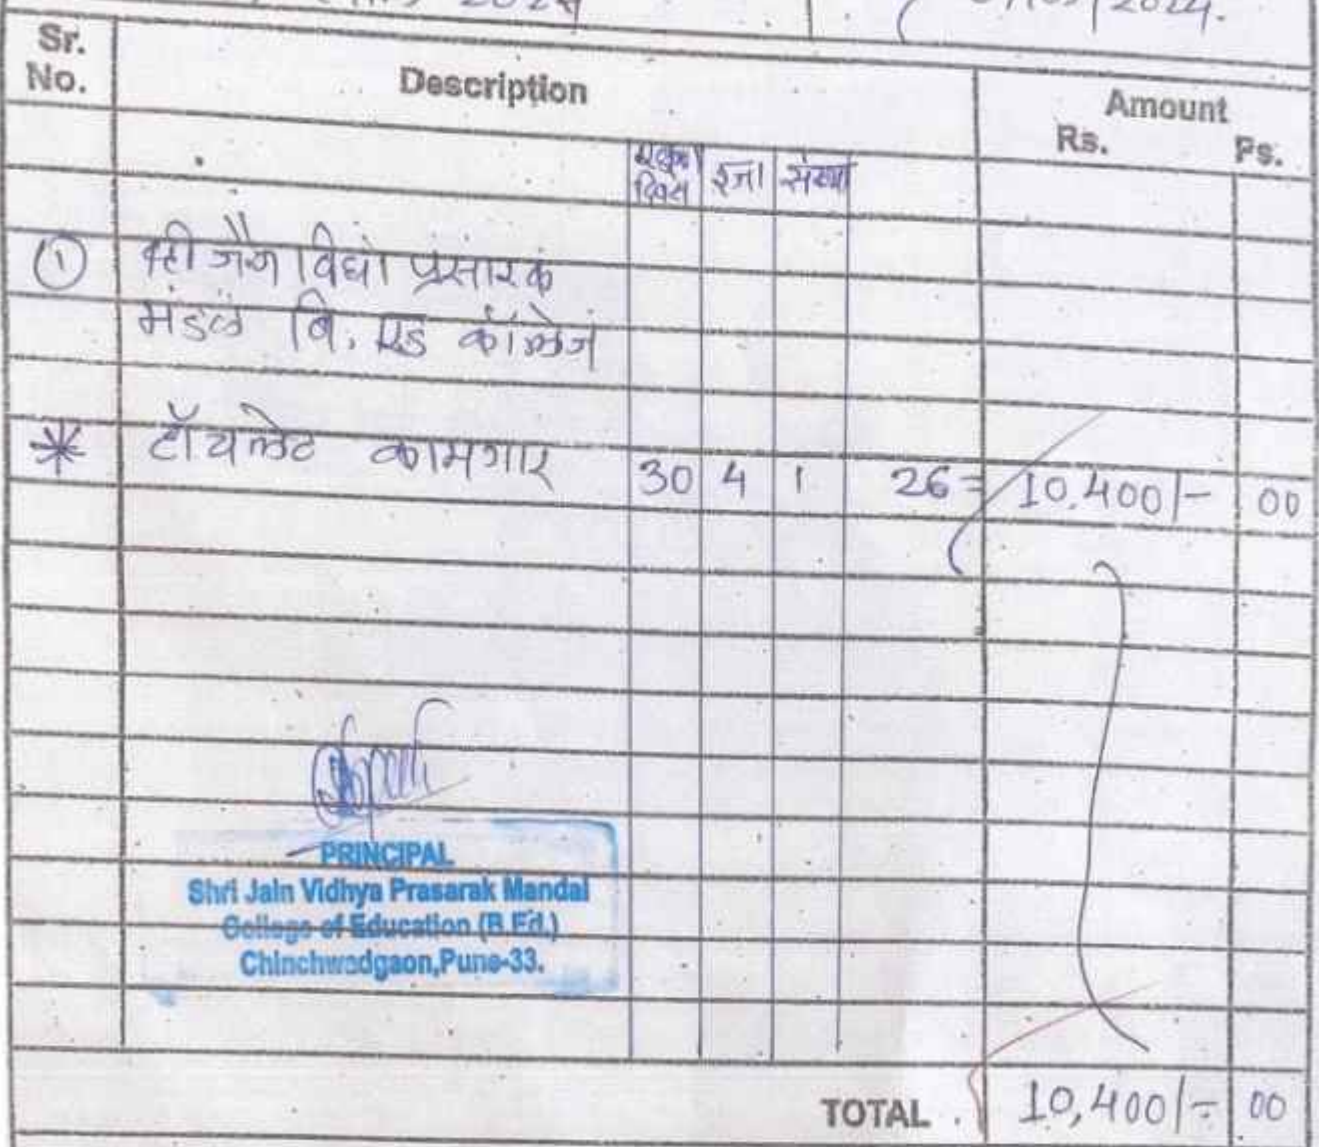 2024
2024.
Sr. No. Description Amount
Rs. Ps.
एकुण दिवस रजा संख्या
① श्री जैन विद्या प्रसारक
मंडळ बि. एड कॉलेज
* टॉयलेट कामगार 30 4 1 26 = 10,400/- 00
PRINCIPAL
Shri Jain Vidhya Prasarak Mandal
College of Education (B.Ed.)
Chinchwadgaon, Pune-33.
TOTAL . 10,400/= 00